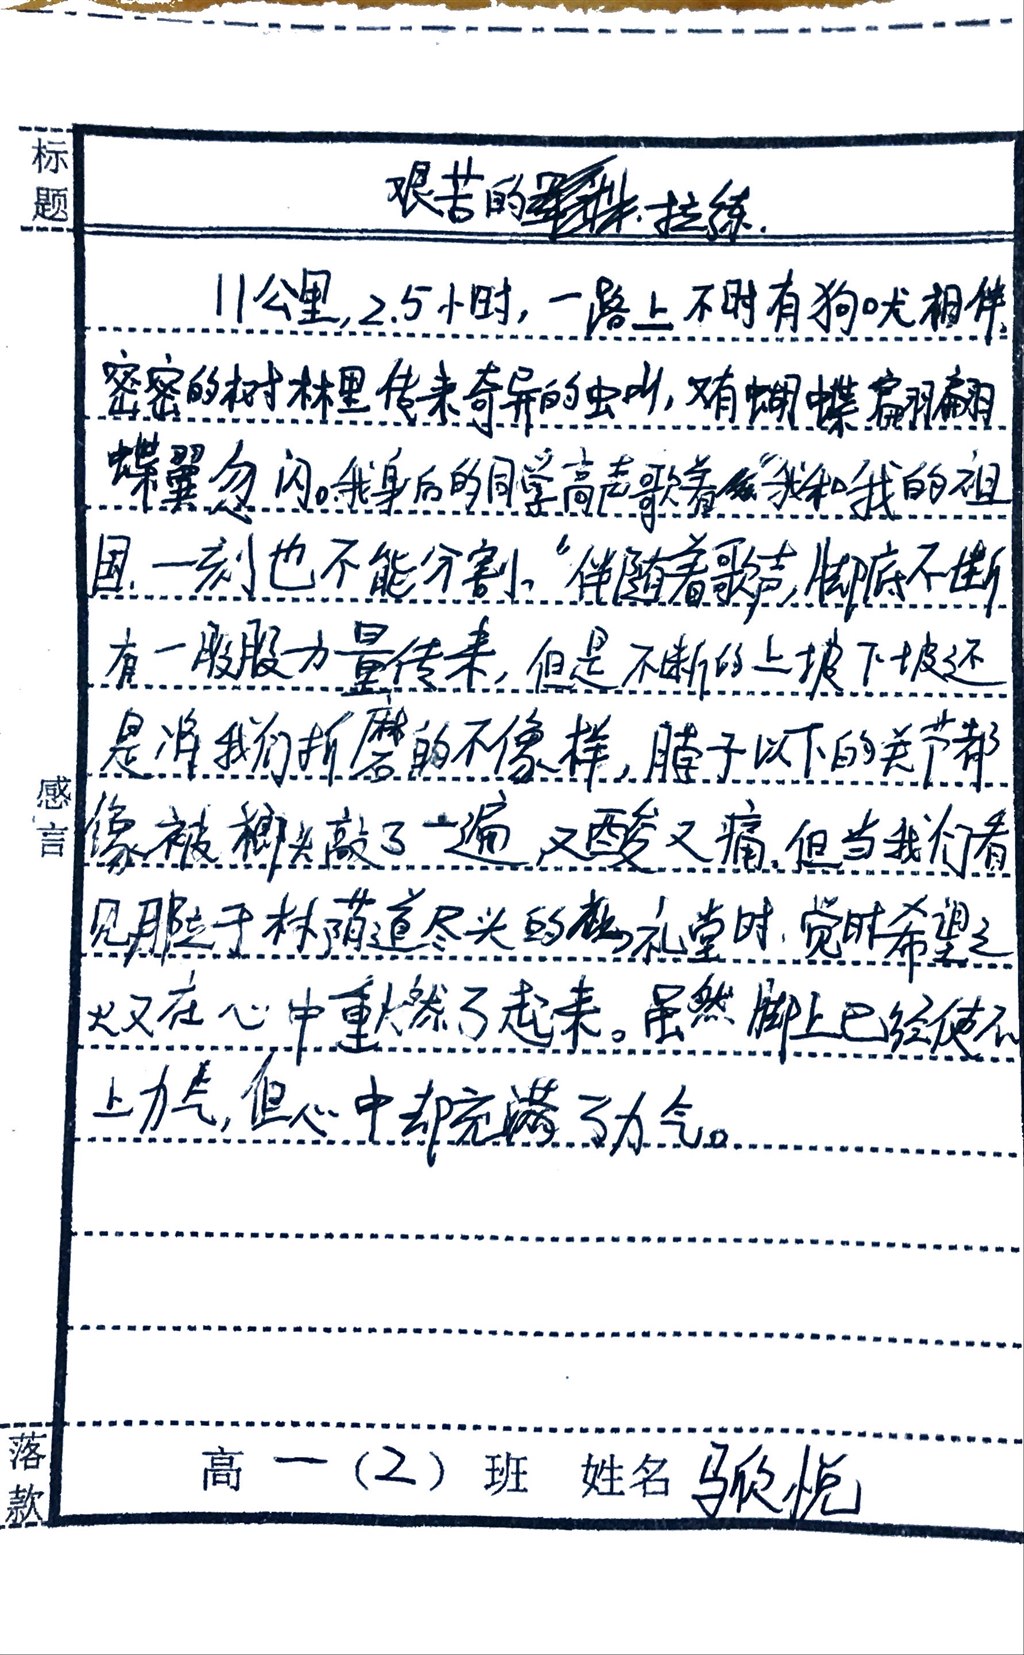 标题
艰苦的拉练.
11公里,2.5小时,一路上不时有狗吠相伴,
密密的树林里传来奇异的虫叫,又有蝴蝶翩翩
蝶翼忽闪。我身后的同学高声歌着“我和我的祖
国,一刻也不能分割、”伴随着歌声,脚底不断
有一股股力量传来,但是不断的上坡下坡还
是将我们折磨的不像样,脖子以下的关节都
像被榔头敲了一遍,又酸又痛.但当我们看
见那立于林荫道尽头的礼堂时,觉时希望之
火又在心中重燃了起来。虽然脚上已经使不
上力气,但心中却充满了力气。
感言
落款
高一(2)班 姓名 马欣悦